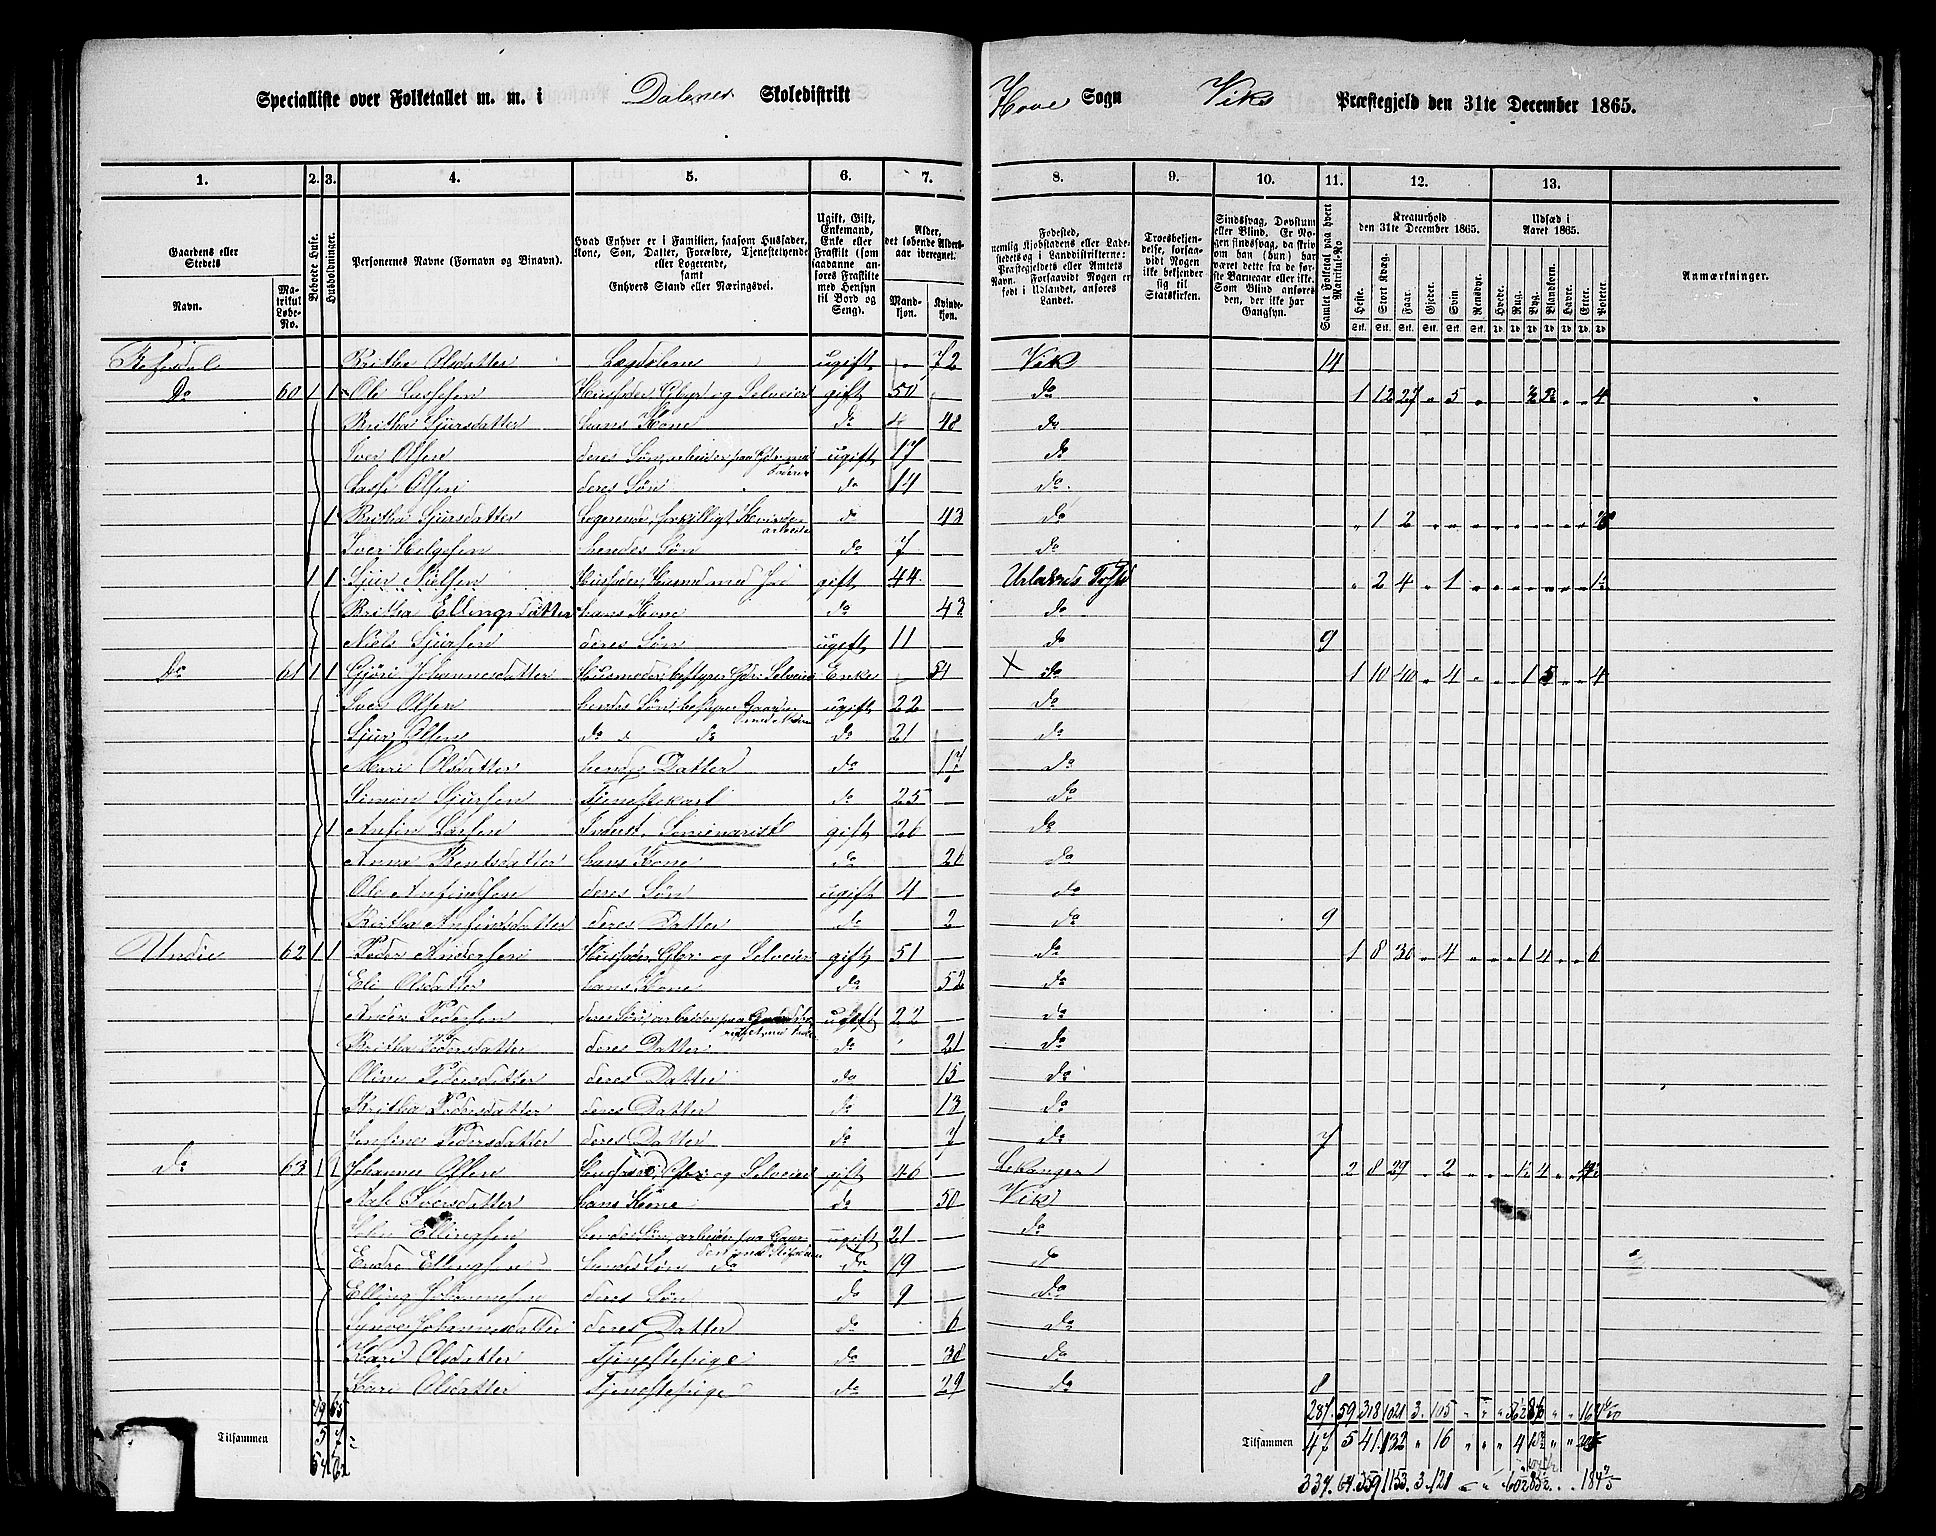 Specialliste over Folketallet m. m. i Dalenes Skoledistrikt Hove Sogn Viks Præstegjeld den 31te December 1865.
1. 2. 3. 4. 5. 6. 7. 8. 9. 10. 11. 12. 13.
Gaardens eller Stedets
Navn.
Matrikul Løbe-No.
Beboede Huse.
Husholdninger.
Personernes Navne (Fornavn og Binavn).
Hvad Enhver er i Familien, saasom Husfader, Kone, Søn, Datter, Forældre, Tjenestetyende eller Logerende, samt Enhvers Stand eller Næringsvei.
Ugift, Gift, Enkemand, Enke eller Fraskilt (som saadanne anføres Fraskilte med Hensyn til Bord og Seng).
Alder, det løbende Aldersaar iberegnet.
Mandkjøn. Kvindekjøn.
Fødested, nemlig Kjøbstadens eller Ladestedets og i Landdistrikterne: Præstegjeldets eller Amtets Navn. Forsaavidt Nogen er født i Udlandet, anføres Landet.
Troesbekjendelse, forsaavidt Nogen ikke bekjender sig til Statskirken.
Sindssvag, Døvstum eller Blind. Er Nogen sindssvag, da skriv om han (hun) har været dette fra de første Barneaar eller ikke. Som Blind anføres den, der ikke har Gangsyn.
Samlet Folketal paa hvert Matrikul-No.
Kreaturhold den 31te December 1865.
Heste. Stort Kvæg. Faar. Gjeder. Svin. Rensdyr.
Udsæd i Aaret 1865.
Hvede. Rug. Byg. Blandkorn. Havre. Erter. Poteter.
Anmærkninger.
Refsdal Britha Olsdatter Lægdslem ugift 72 Vik 14
Do 60 1 1 Ole Lassesen Husfader, Gbr og Selveier gift 50 do 1 12 27 5 4
Britha Sjursdatter hans Kone do 48 do
Iver Olsen deres Søn, arbeider paa Gden med Faderen ugift 17 do
Lasse Olsen deres Søn do 14 do
1 Britha Sjursdatter Logerende, forskilligt Kvindearbeide do 43 do 1 2
Iver Helgesen hendes Søn do 7 do
1 1 Sjur Nielsen Husfader, Husmand med Jord gift 44 Urlands 2 4 1
Britha Ellingsdatter hans Kone do 43 do
Niels Sjursen deres Søn ugift 11 do 9
Do 61 1 1 Gjøri Johannesdatter Husmoder, bestyrer Gdr. Selveier Enke 54 do 1 10 40 4 1 5 4
Iver Olsen hendes Søn, bestyrer Gaarden ugift 22 do
Sjur Olsen do do do 21 do
Mari Olsdatter hendes Datter do 17 do
Simon Sjursen Tjenestekarl do 25 do
1 Anfin Larsen Inderst, Seminarist gift 26 do
Anna Bentsdatter hans Kone do 26 do
Ole Anfindsen deres Søn ugift 4 do
Britha Anfindsdatter deres Datter do 2 do 9
Undie 62 1 1 Peder Andersen Husfader, Gbr og Selveier gift 51 do 1 8 30 4 1 4 6
Eli Olsdatter hans Kone do 52 do
Anders Pedersen deres Søn, arbeider paa ugift 22 do
Britha Pedersdatter deres Datter do 21 do
Oline Pedersdatter deres Datter do 15 do
Britha Pedersdatter deres Datter do 13 do
Pedersdatter deres Datter do 7 do 7
Do 63 1 Johannes Olsen Husfader, Gbr og Selveier gift 40 Lekanger 2 8 29 2 4
Iversdatter hans Kone do 50 Vik
John Ellingsen hendes Søn, arbeider paa Gaarden ugift 21 do
Endre Ellingsen hendes Søn do do 19 do
Elling Johannesen deres Søn do 9 do
Synva Johannesdatter deres Datter do 6 do
Kari Olsdatter Tjenestepige do 38 do
Kari Olsdatter Tjenestepige do 29 do 8
49 55 287 59 318 1021 3 105
Tilsammen 5 7 Tilsammen 47 5 41 132 16 4
54 62 334 64 359 1153 3 121